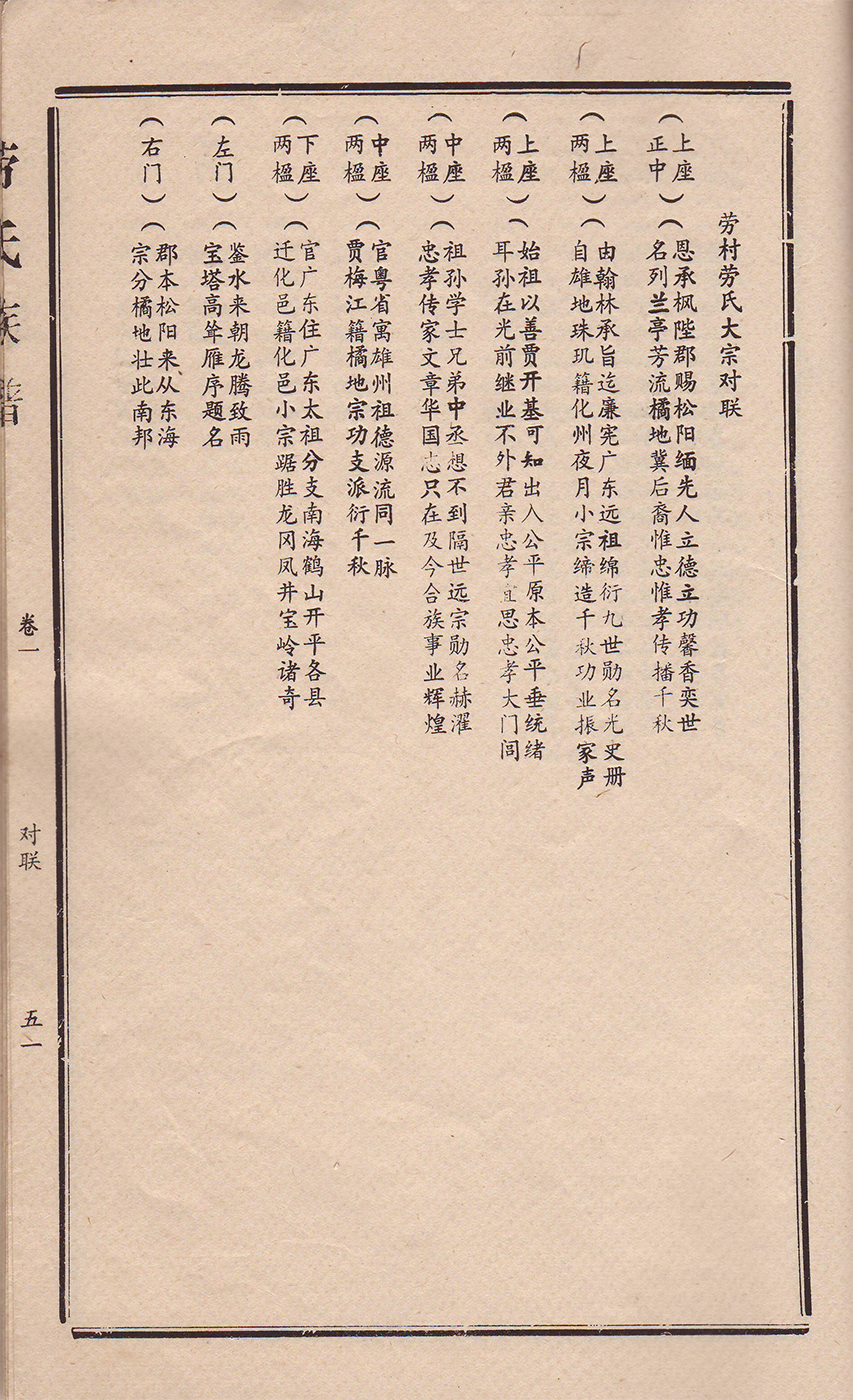 劳村劳氏大宗对联
（上座正中）（恩承枫陛郡赐松阳缅先人立德立功馨香奕世
名列兰亭芳流橘地冀后裔惟忠惟孝传播千秋
（上座两楹）（由翰林承旨迄廉宪广东远祖绵衍九世勋名光史册
自雄地珠玑籍化州夜月小宗缔造千秋功业振家声
（上座两楹）（始祖以善贾开基可知出入公平原本公平垂统绪
耳孙在光前继业不外君亲忠孝宜思忠孝大门闾
（中座两楹）（祖孙学士兄弟中丞想不到隔世远宗勋名赫濯
忠孝传家文章华国志只在及今合族事业辉煌
（中座两楹）（官粤省寓雄州祖德源流同一脉
贾梅江籍橘地宗功支派衍千秋
（下座两楹）（官广东住广东太祖分支南海鹤山开平各县
迁化邑籍化邑小宗踞胜龙冈凤井宝岭诸奇
（左门）（鉴水来朝龙腾致雨
宝塔高耸雁序题名
（右门）（郡本松阳来从东海
宗分橘地壮此南邦
劳氏族谱
卷一
对联
五一